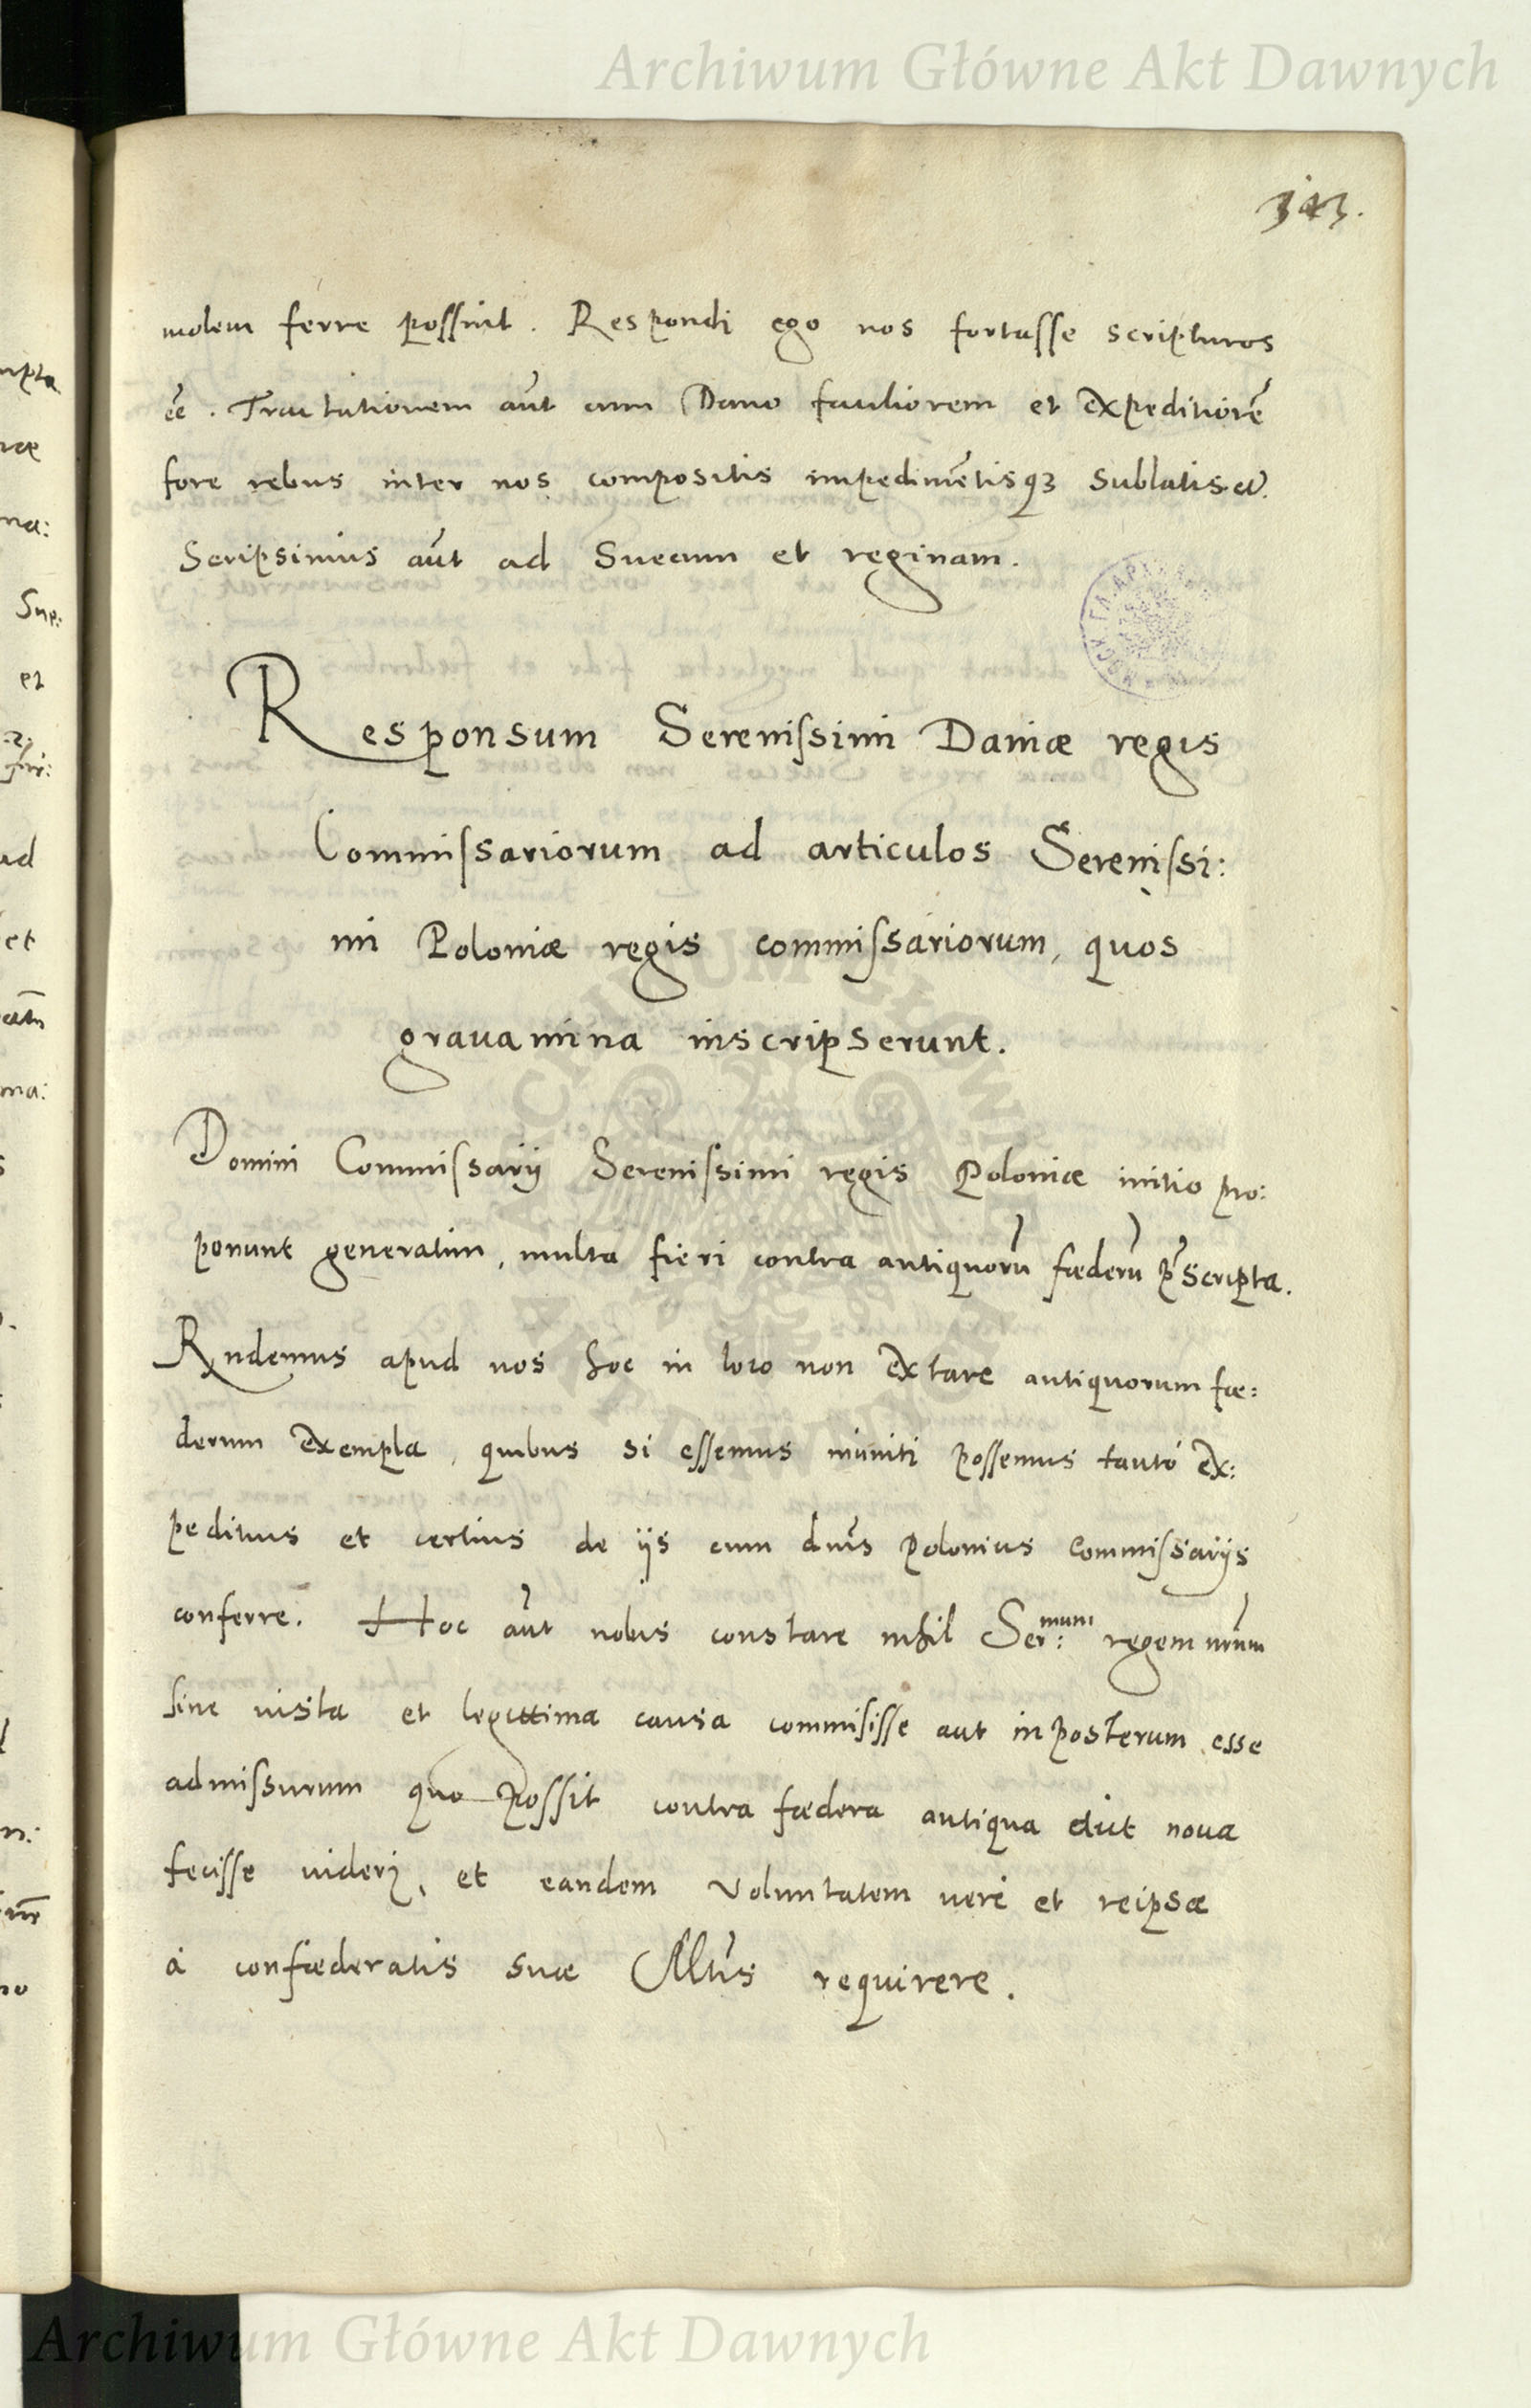 Archiwum Główne Akt Dawnych
343.
molem ferre possint. Respondi ego nos fortasse scripturos
ee͂. Tractationem aut͂ cum Dano faciliorem et expeditiore͂
fore rebus inter nos compositis impedime͂tisq3 sublatis.
Scripsimus aut͂ ad Suecum et reginam.
Responsum Serenissimi Daniæ regis
Commissariorum ad articulos Serenissi:
mi Poloniæ regis commissariorum, quos
grauamina inscripserunt.
Domini Commissarij Serenissimi regis Poloniæ initio pro:
ponunt generatim, multa fieri contra antiquoru͂ fœderu͂ p͂scripta.
Rndemus apud nos hoc in loco non extare antiquorum fœ:
derum exempla, quibus si essemus muniti possemus tantó ex:
peditius et certius de ijs cum dnis͂ Polonicis Commissarijs
conferre. Hoc aut͂ nobis constare nihil Ser:mum regem nrum͂
sine iusta et legittima causa commisisse aut in posterum esse
admissurum quo possit contra fœdera antiqua aut noua
fecisse uideri, et eandem voluntatem uerè et reipsæ
à confœderatis suæ Mtis͂ requirere.
Archiwum Główne Akt Dawnych